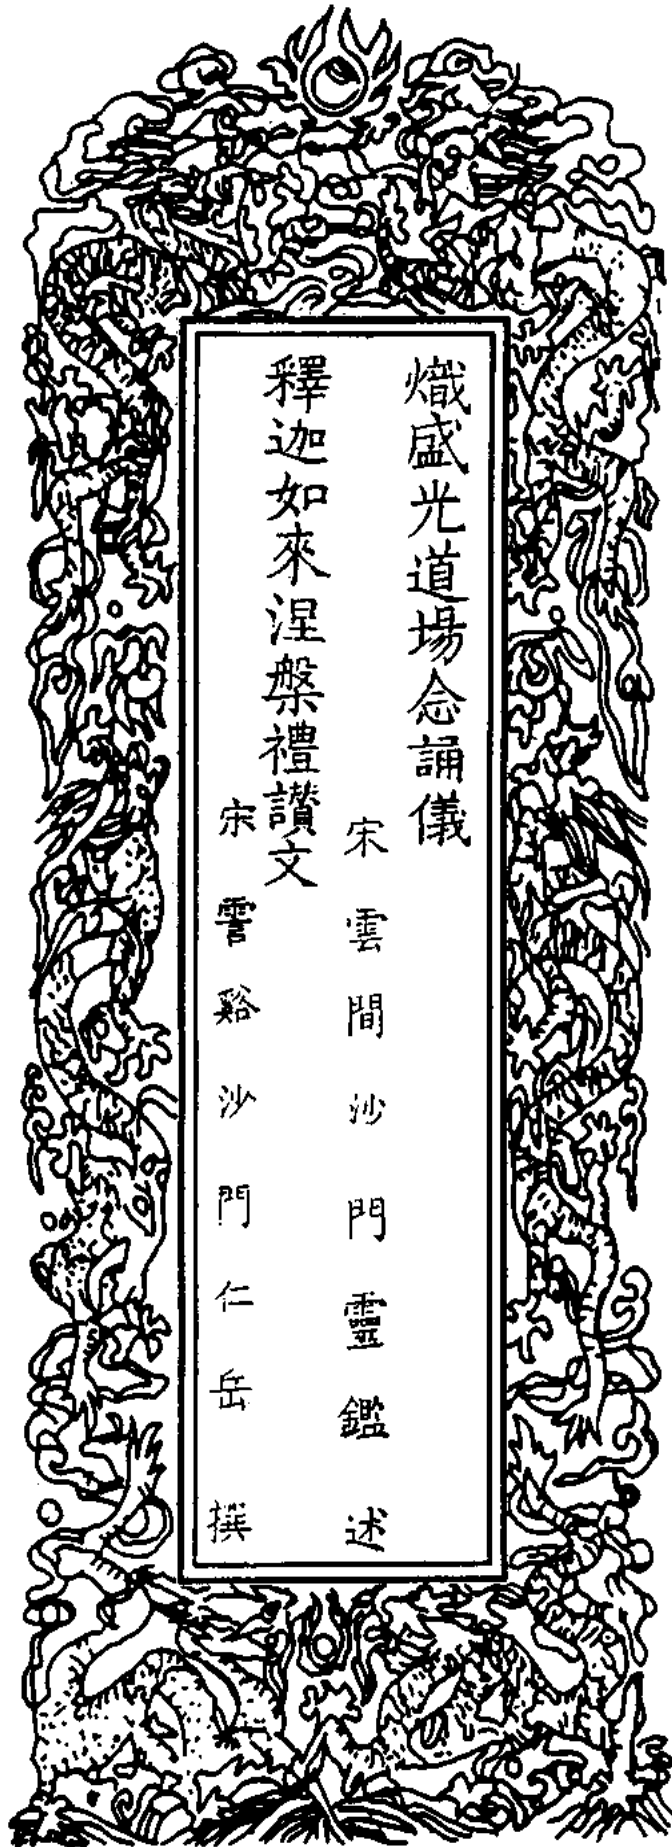 熾盛光道場念誦儀
宋雲間沙門靈鑑述
釋迦如來涅槃禮讚文
宋霅谿沙門仁岳撰